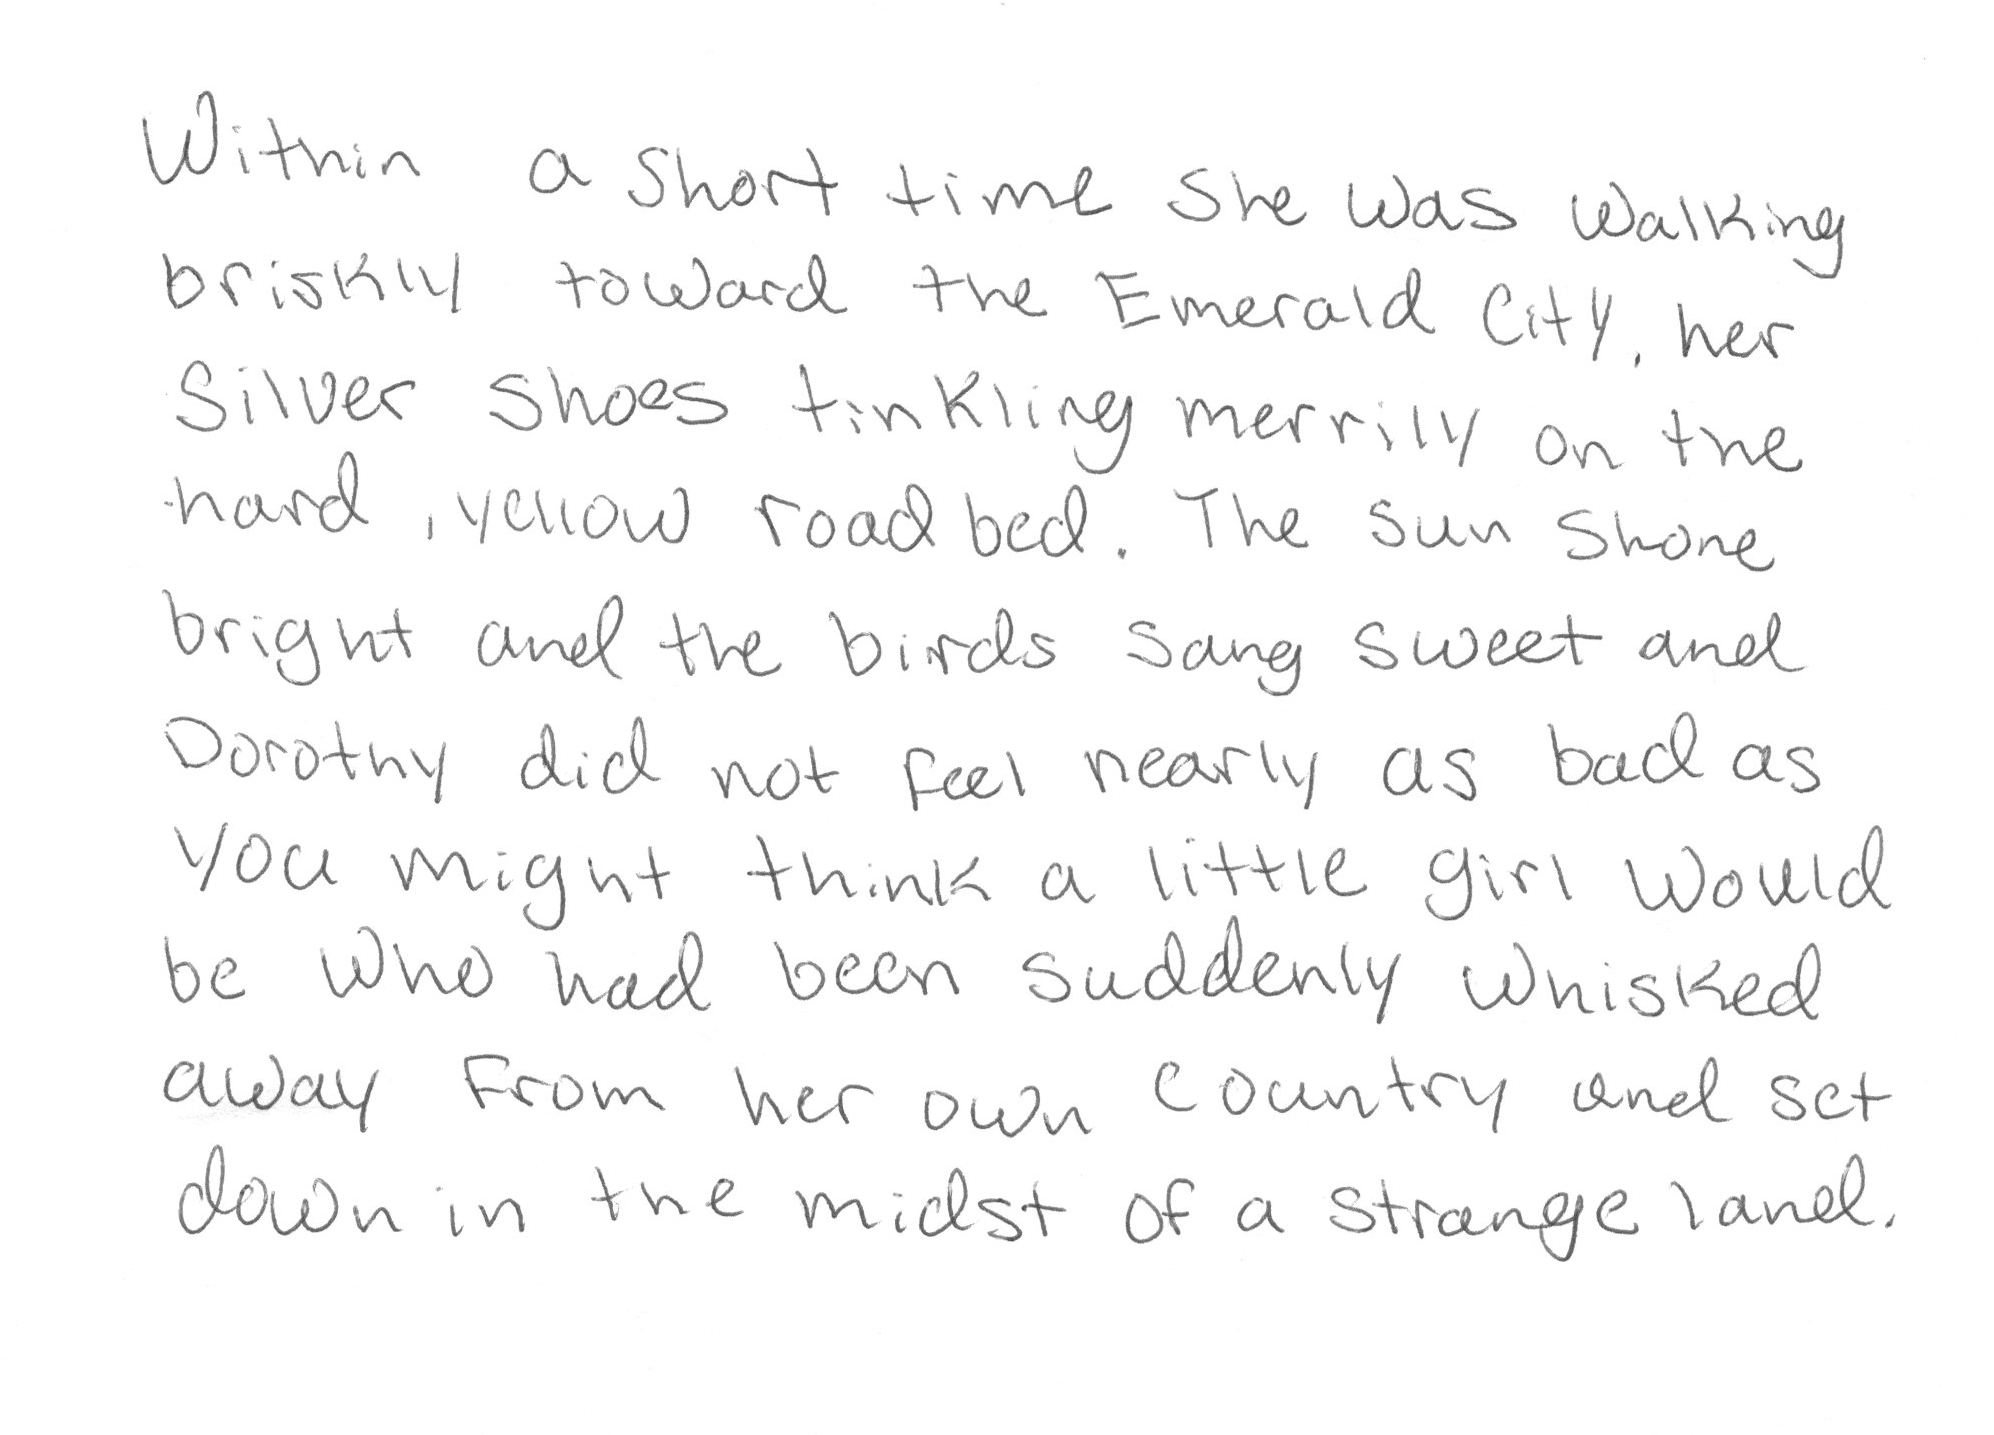 Within a short time she was walking
briskly toward the Emerald City, her
Silver shoes tinkling merrily on the
hard, yellow road bed. The sun shone
bright and the birds sang sweet and
Dorothy did not feel nearly as bad as
you might think a little girl would
be who had been suddenly whisked
away from her own country and set
down in the midst of a strange land.